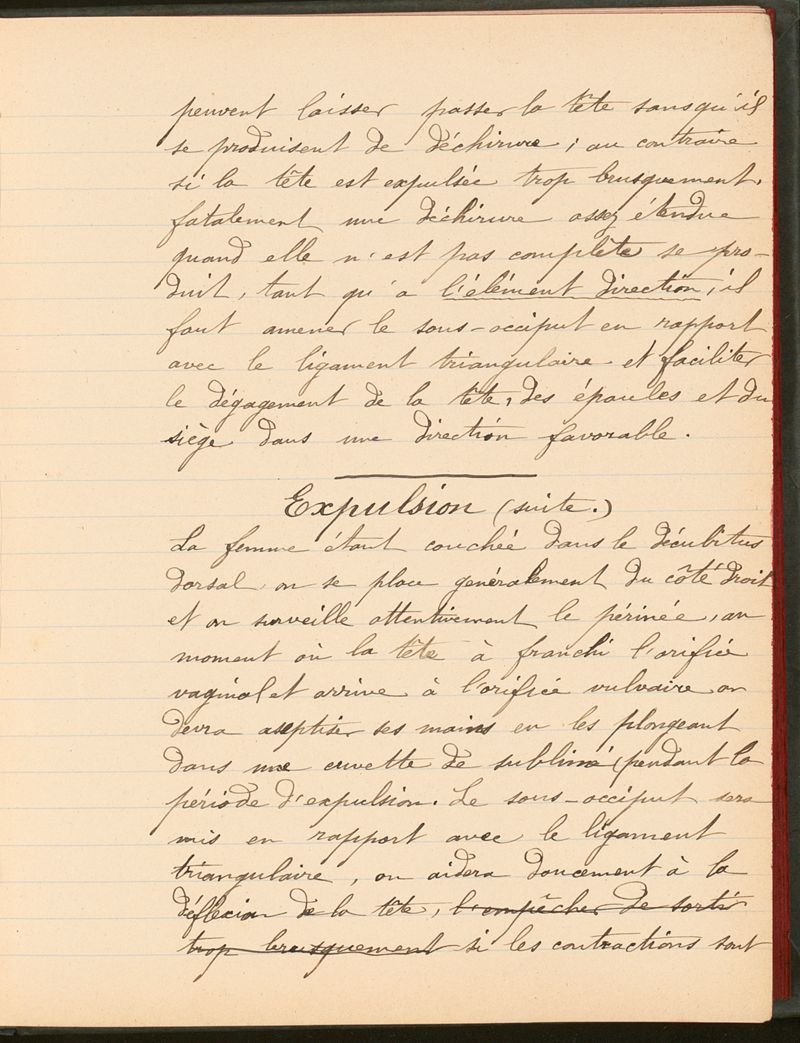 peuvent laisser passer la tête sans qu'il
se produisent de déchirure ; au contraire
si la tête est expulsée trop brusquement,
fatalement une déchirure assez étendue
quand elle n'est pas complète se pro-
duit, tant qu'a l'élément direction, il
faut amener le sous-occiput en rapport
avec le ligament triangulaire et faciliter
le dégagement de la tête, des épaules et du
siège dans une direction favorable.
Expulsion (suite.)
La femme étant couchée dans le décubitus
dorsal on se place généralement du côté droit
et on surveille attentivement le périnée, au
moment où la tête à franchi l'orifice
vaginal et arrive à l'orifice vulvaire on
devra aseptiser ses mains en les plongeant
dans une cuvette de sublimé (pendant la
période d'expulsion. Le sous-occiput sera
mis en rapport avec le ligament
triangulaire, on aidera doucement à la
déflexion de la tête, l'empêcher de sortir
trop brusquement si les contractions sont